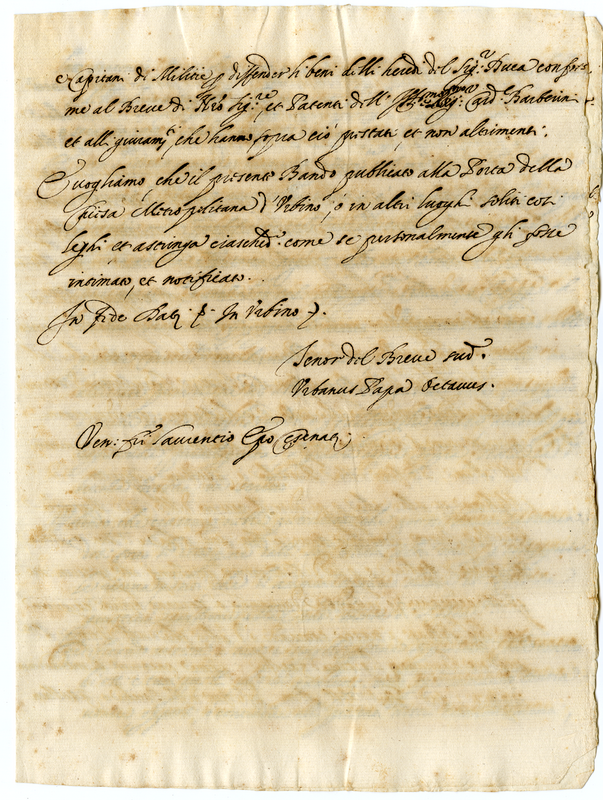 e Capitani di Militie p diffender li beni delli heredi del Sig.r Duca confor-
me al Breve di Nro Sig.re, et Patenti dell' Sig. Card. Barberini
et alli giuram.ti, che hanno sopra ciò prestati, et non altrimenti.
Et vogliamo, che il presente Bando publicato alla Porta della
Chiesa Metropolitana d' Urbino, o in altri luoghi soliti così
leghi et astringa ciasched.o come se personalmente gli fosse
intimato, et notificato.
In fide Dat. p. In Urbino
Tenor del Breve sud.o
Urbanus Papa Octavus.
Ven: fri Laurentio Epo Cesenat.